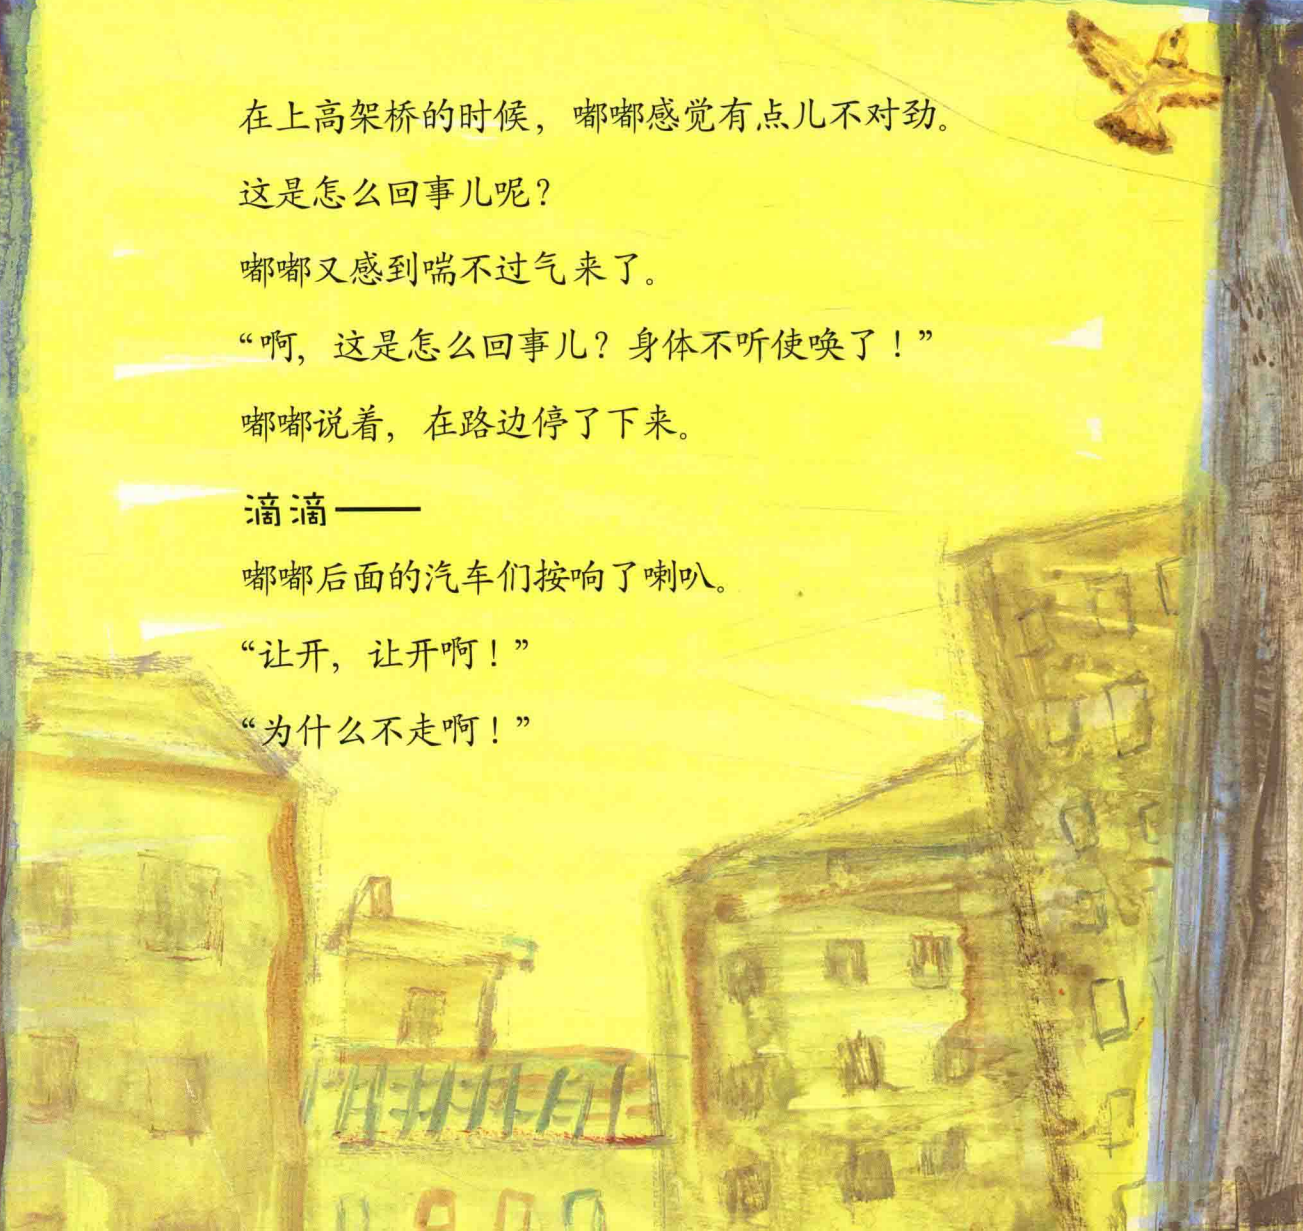 在上高架桥的时候，嘟嘟感觉有点儿不对劲。
这是怎么回事儿呢？
嘟嘟又感到喘不过气来了。
“啊，这是怎么回事儿？身体不听使唤了！”
嘟嘟说着，在路边停了下来。
滴滴——
嘟嘟后面的汽车们按响了喇叭。
“让开，让开啊！”
“为什么不走啊！”